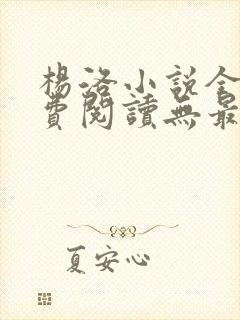 楊洛小說全
費閱讀無最
夏安心